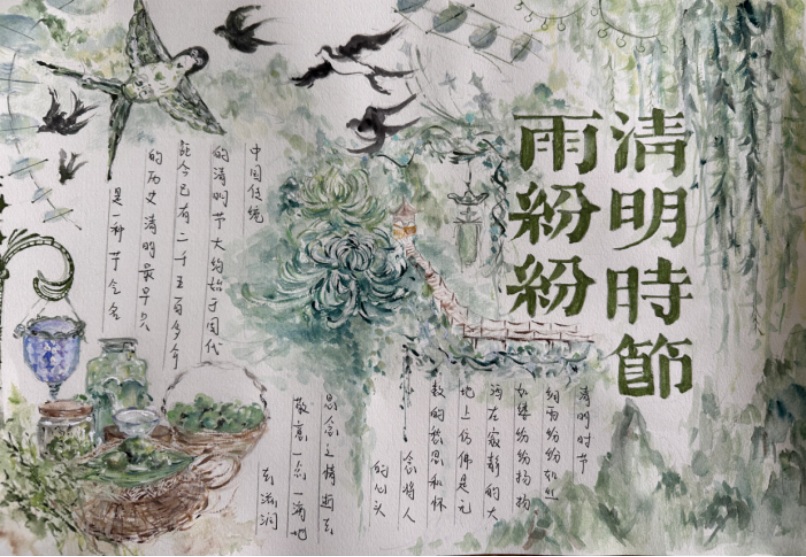 清明時節
雨紛紛
清明时节
细雨纷纷如丝
如缕纷纷扬扬
洒在寂静的大
地上仿佛是无
数的愁思和怀
念将人
的心头
思念之情逝去
敬意一点一滴地
在滋润
中国传统
的清明节大约始于周代
距今已有二千五百多年
的历史清明最早只
是一种节令名